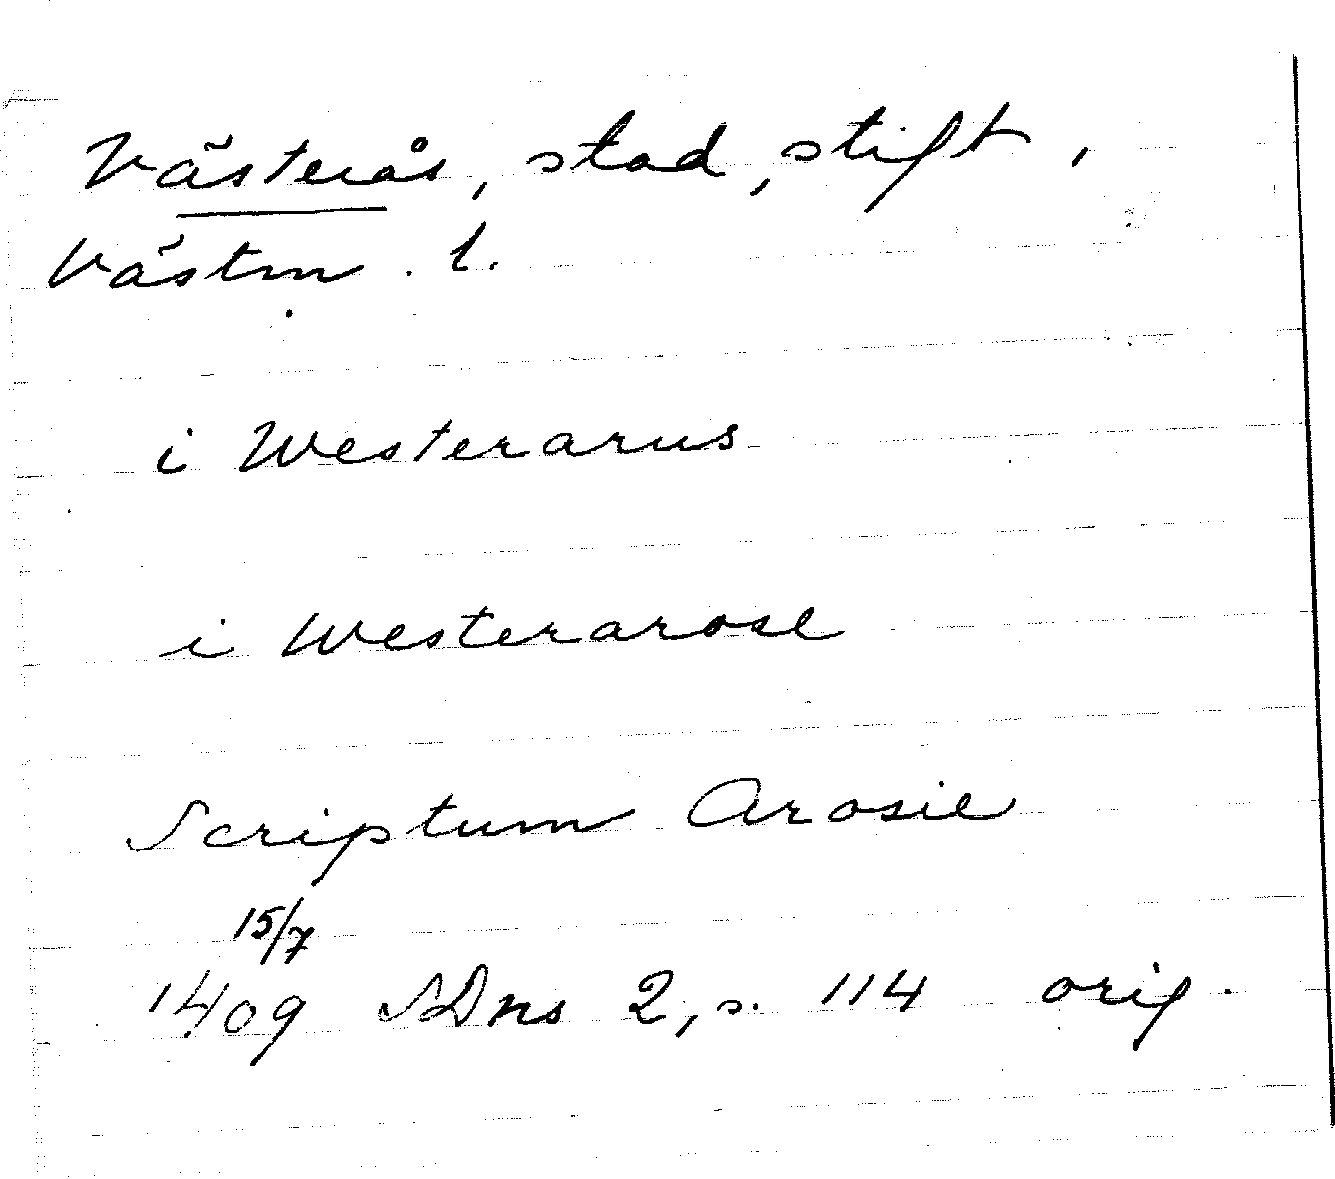 Västerås, stad, stift,
Västm. l.
i Westerarus
i Westerarose
Scriptum Arosie
15/7
1409 SDns 2, s. 114 orig.